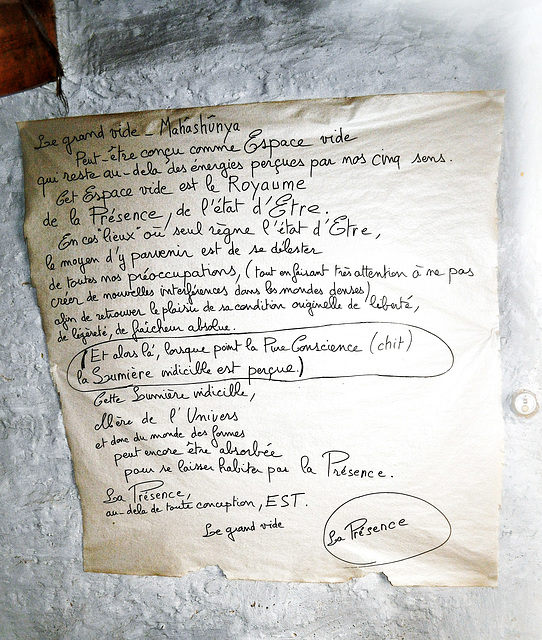 Le grand vide - Mahashûnya
Peut-être conçu comme Espace vide
qui reste au-delà des énergies perçues par nos cinq sens.
Cet Espace vide est le Royaume
de la Présence, de l'état d'Etre.
En ces "lieux" où seul règne l'état d'Etre,
le moyen d'y parvenir est de se délester
de toutes nos préoccupations, (tout en faisant très attention à ne pas
créer de nouvelles interférences dans les mondes denses)
afin de retrouver le plaisir de sa condition originelle de liberté,
de légèreté, de fraîcheur absolue.
(Et alors là, lorsque point la Pure Conscience (chit)
la Lumière indicible est perçue.)
Cette Lumière indicible,
Mère de l'Univers
et donc du monde des formes
peut encore être absorbée
pour se laisser habiter par la Présence.
La Présence,
au-delà de toute conception, EST.
Le grand vide
La Présence